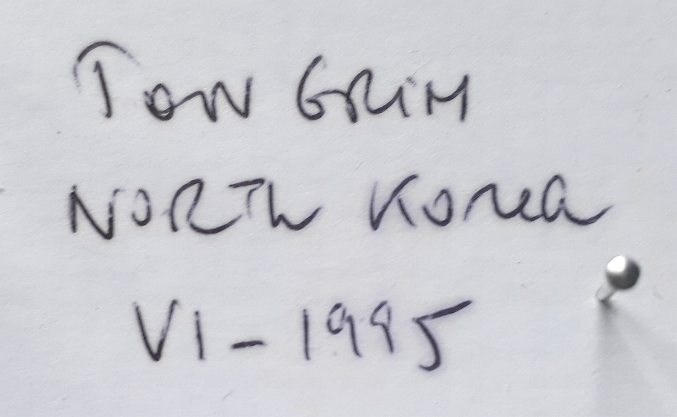 TOM GRIM
NORTH KOREA
VI - 1995